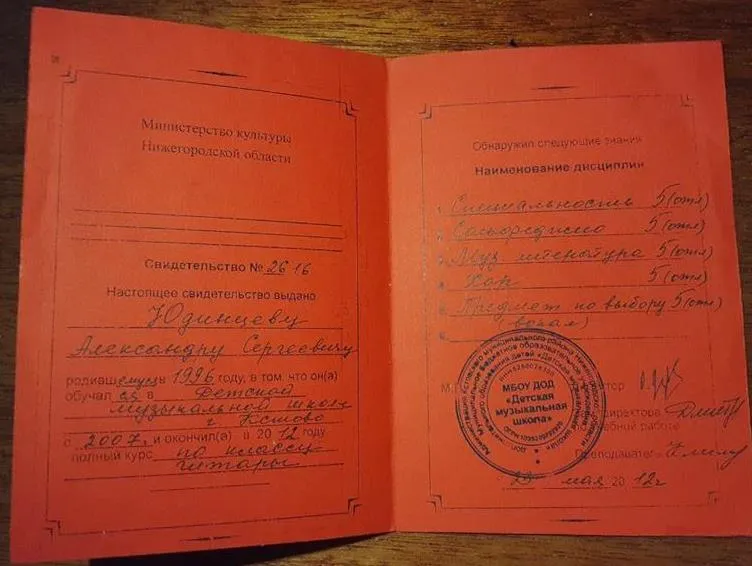 Министерство культуры
Нижегородской области
Свидетельство № 2616
Настоящее свидетельство выдано
Юдинцеву
Александру Сергеевичу
родившемуся в 1996 году, в том, что он(а)
обучался в Детской
музыкальной школе
г. Кстово
с 2007 г. и окончил(а) в 2012 году
полный курс по классу
гитары
Обнаружил следующие знания
Наименование дисциплин
Специальность 5 (отл)
Сольфеджио 5 (отл)
Муз литература 5 (отл)
Хор 5 (отл)
Предмет по выбору 5 (отл)
(вокал)
МБОУ ДОД
«Детская
музыкальная
школа»
М.
директора
работе
Преподаватель
23 мая 2012 г